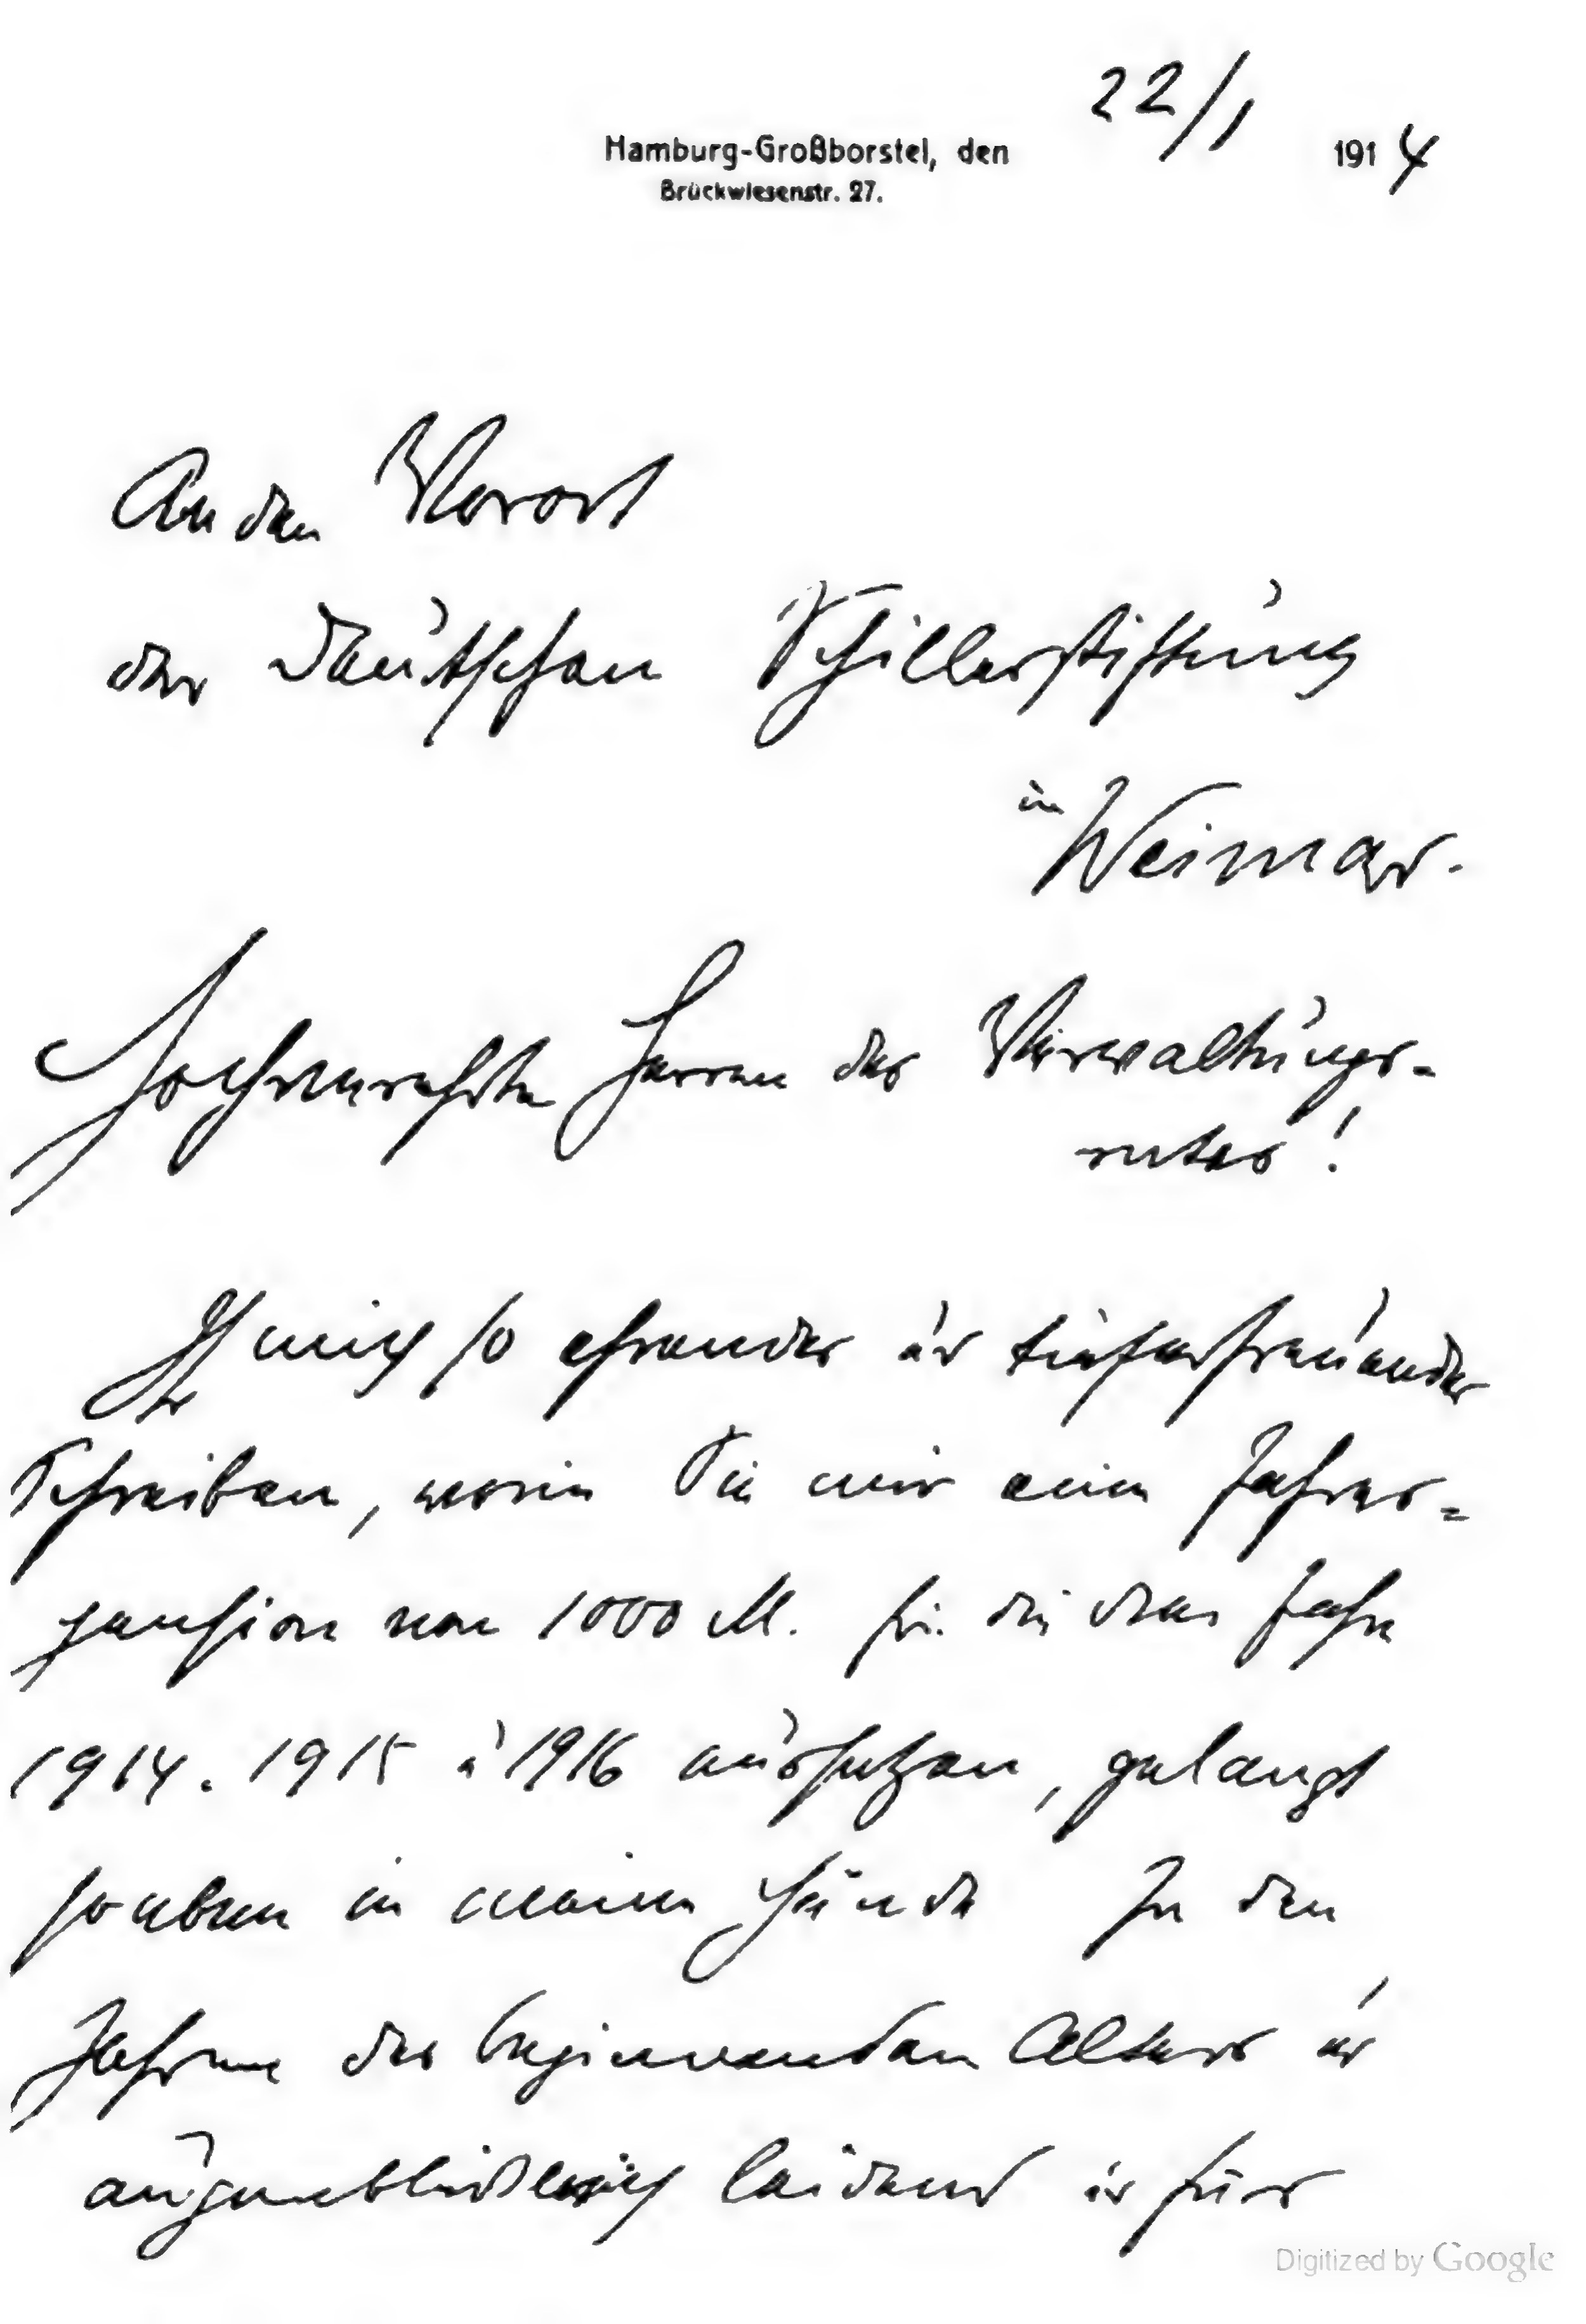 22/1
Hamburg-Großborstel, den 1914
Brückwiesenstr. 27.
An den Vorort
der Deutschen Schillerstiftung
in Weimar.
Hochverehrte Herren des Verwaltungs-
rates!
Ihr mich so ehrender u tieferfreuender
Schreiben, worin Sie mir eine Jahres-
pension von 1000 M. für die drei Jahre
1914. 1915 u 1916 aussetzen, gelangt
soeben in meine Hände In den
Jahren des beginnenden Alters u
augenblicklich leidend u für
Digitized by Google